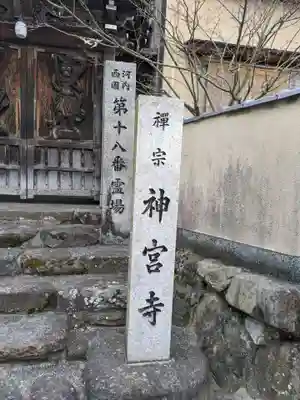 河内
西國
第十八番霊場
禪宗
神宮寺